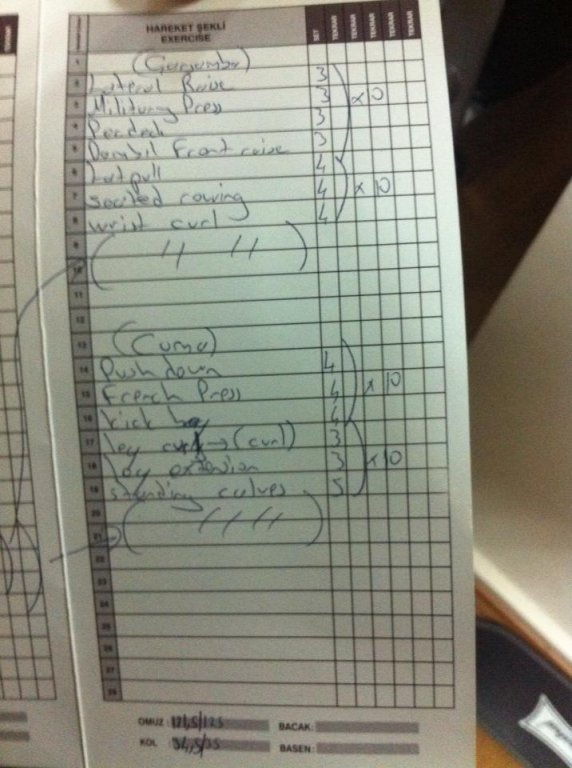 HAREKET ŞEKLİ
EXERCISE
SET
TEKRAR
TEKRAR
TEKRAR
TEKRAR
TEKRAR
1 (Çarşamba)
2 Lateral Raise 3
3 Military Press 3 x 10
4 Pecdeck 3
5 Dambil Front raise 3
6 Latpull 4
7 seated rowing 4 x 10
8 wrist curl 4
9 ( // // )
10
11
12
13 (Cuma)
14 Push down 4
15 French Press 4 x 10
16 kick bay 4
17 ley (curl) 3
18 ley extension 3 x 10
19 standing culves 5
20 ( // // )
21
22
23
24
25
26
27
28
OMUZ : 121,5/125 BACAK:
KOL : 34,5/35 BASEN: